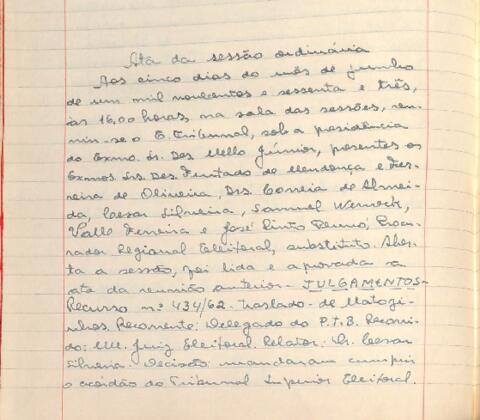 Ata da sessão ordinária
Aos cinco dias do mês de junho
de um mil novecentos e sessenta e três,
às 16,00 horas, na sala das sessões, reu-
niu-se o E. Tribunal, sob a presidência
do Exmo. Sr. Des. Mello Júnior, presentes os
Exmos. Srs. Des. Furtado de Mendonça e Fer-
reira de Oliveira, Drs. Correia de Almei-
da, Cesar Silveira, Samuel Werneck,
Valle Ferreira e José Pinto Renó, Procu-
rador Regional Eleitoral, substituto. Aber-
ta a sessão, foi lida e aprovada a
ata da reunião anterior. - JULGAMENTOS -
Recurso nº 434/62. Traslado - de Matozi-
nhos. Recorrente: Delegado do P.T.B. Recorri-
do: MM. Juiz Eleitoral. Relator: Dr. Cesar
Silveira. Decisão: mandaram cumprir
o acórdão do Tribunal Superior Eleitoral.